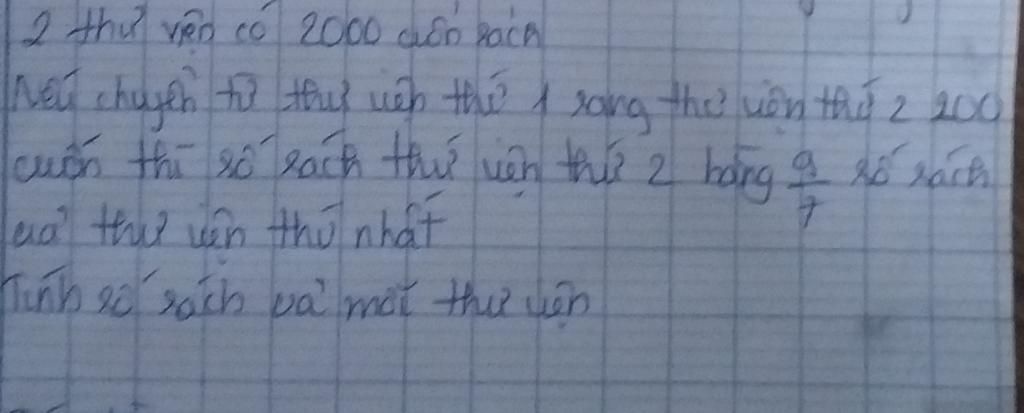 2 thư viện có 2000 cuốn sách
Nếu chuyển từ thư viện thứ 1 sang thư viện thứ 2 200
cuốn thì số sách thư viện thứ 2 bằng 9/7 số sách
của thư viện thứ nhất
Tính số sách của mỗi thư viện